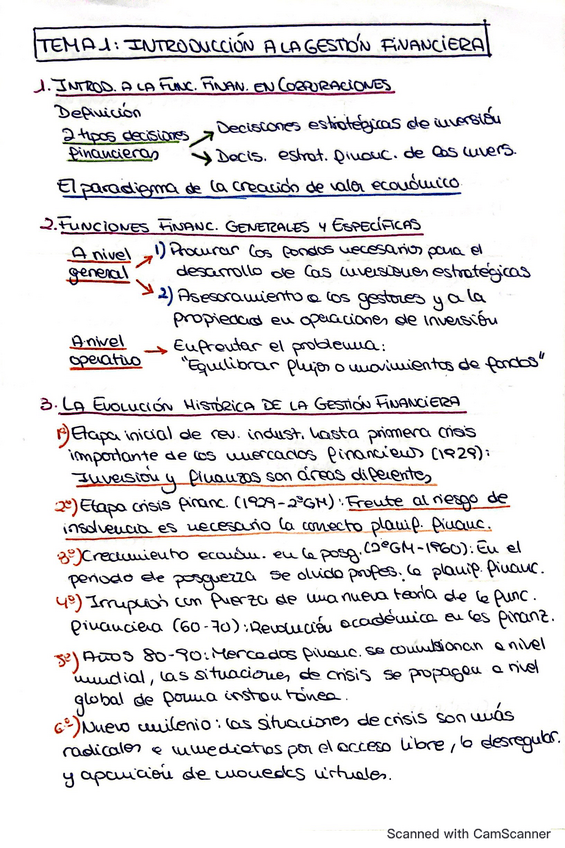 TEMA 1: INTRODUCCIÓN A LA GESTIÓN FINANCIERA
1. INTROD. A LA FUNC. FINAN. EN CORPORACIONES
Definición
2 tipos decisiones financieras
→ Decisiones estratégicas de inversión
→ Decis. estrat. financ. de las invers.
El paradigma de la creación de valor económico
2. FUNCIONES FINANC. GENERALES Y ESPECÍFICAS
A nivel general
→ 1) Procurar los fondos necesarios para el
desarrollo de las inversiones estratégicas
→ 2) Asesoramiento a los gestores y a la
propiedad en operaciones de inversión
A nivel operativo
→ Enfrentar el problema:
"Equilibrar flujos o movimientos de fondos"
3. LA EVOLUCIÓN HISTÓRICA DE LA GESTIÓN FINANCIERA
1º) Etapa inicial de rev. indust. hasta primera crisis
importante de los mercados financieros (1929):
Inversión y finanzas son áreas diferentes
2º) Etapa crisis financ. (1929-2ºGM): Frente al riesgo de
insolvencia es necesario la correcta planif. financ.
3º) Crecimiento económ. en la posg. (2ºGM-1960): En el
periodo de posguerra se olvidó profes. la planif. financ.
4º) Irrupción con fuerza de una nueva teoría de la func.
financiera (60-70): Revolución académica en las finanz.
5º) Años 80-90: Mercados financ. se convulsionan a nivel
mundial, las situaciones de crisis se propagan a nivel
global de forma instantánea.
6º) Nuevo milenio: las situaciones de crisis son más
radicales e inmediatas por el acceso libre, la desregular.
y aparición de monedas virtuales.
Scanned with CamScanner